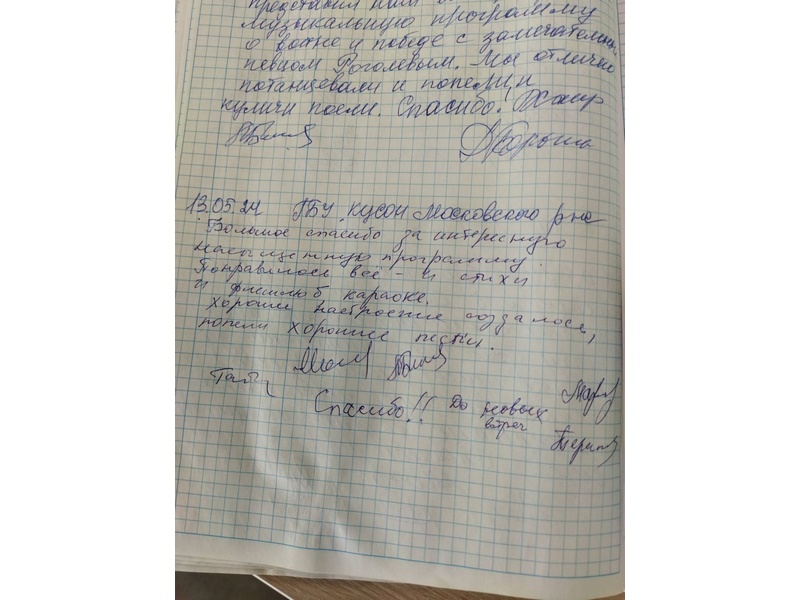 представил нам
музыкальную программу
о войне и победе с замечательным
певцом Роголевым. Мы отлично
потанцевали и попели, и
куличи поели. Спасибо.
13.05.24 ГБУ КЦСОН Московского р-на
Большое спасибо за интересную
насыщенную программу.
Понравилось всё - и стихи
и флешмоб караоке.
Хорошее настроение создалось,
попели хорошие песни.
Спасибо!! До новых
встреч